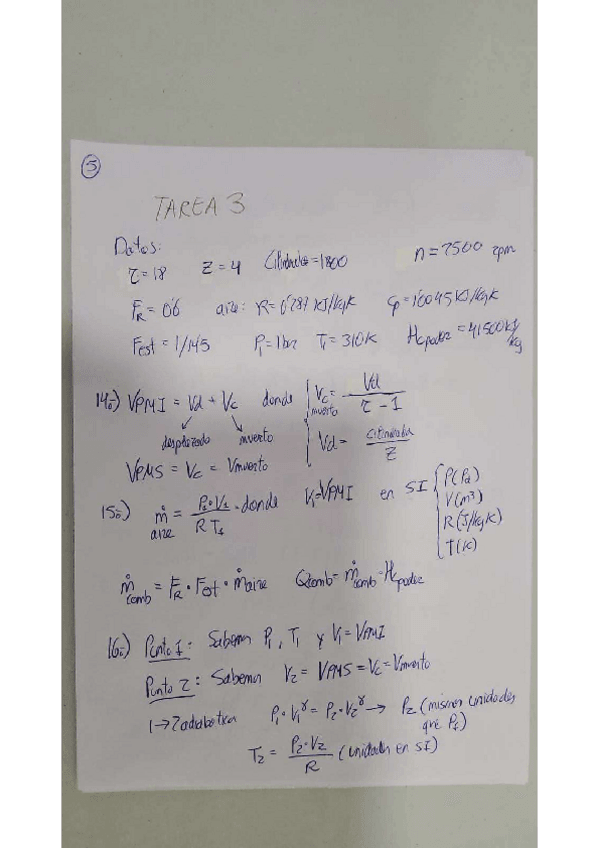 5
TAREA 3
Datos:
τ=18 Z=4 Cilindrada=1800 n=2500 rpm
F_R=0'6 aire: R=0'287 KJ/kgK cp=1'0045 KJ/kgK
Fest=1/14'5 P₁=1bar T₁=310K Hcpoder=41500 kJ/kg
14º) VPMI = Vd + Vc donde { Vc = Vd / (τ - 1)
desplazado muerto muerto
Vd = cilindrada / Z
VPMS = Vc = Vmuerto
15º) ṁ aire = P₁·V₁ / R T₁ · donde V₁=VPMI en SI { P(Pa)
V(m³)
R(J/kgK)
T(K)
ṁcomb = F_R · Fest · ṁaire Qcomb = ṁcomb · Hcpoder
16º) Punto 1: Sabemos P₁, T₁ y V₁=VPMI
Punto 2: Sabemos V₂ = VPMS = Vc = Vmuerto
1→2 adiabática P₁·V₁^γ = P₂·V₂^γ → P₂ (mismas unidades que P₁)
T₂ = P₂·V₂ / R (unidades en SI)